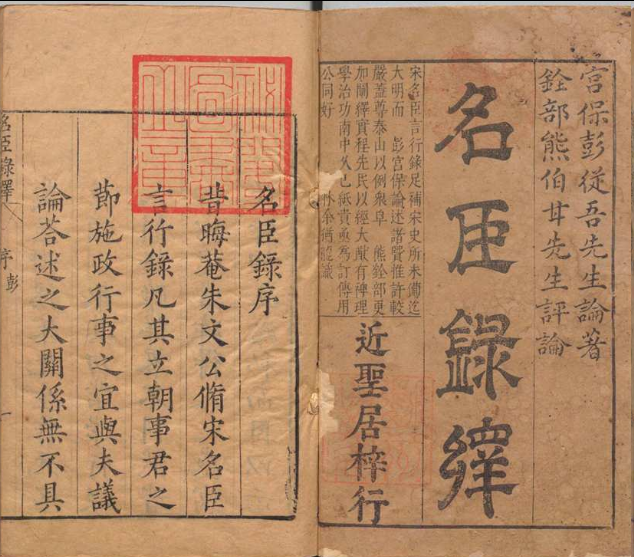 宮保彭從吾先生論著
銓部熊伯甘先生評論
名臣錄繹
宋名臣言行錄足補宋史所未備迄
大明而 彭宮保論述諸賢推許較
嚴蓋尊泰山以例衆阜 熊銓部更
加闡釋實程先民以經大猷有裨理
學治功南中久已紙貴亟為訂傳用
公同好
近聖居梓行
名臣錄序
昔晦菴朱文公脩宋名臣
言行錄凡其立朝事君之
節施政行事之宜與夫議
論荅述之大關係無不具
名臣錄繹 序彭 一